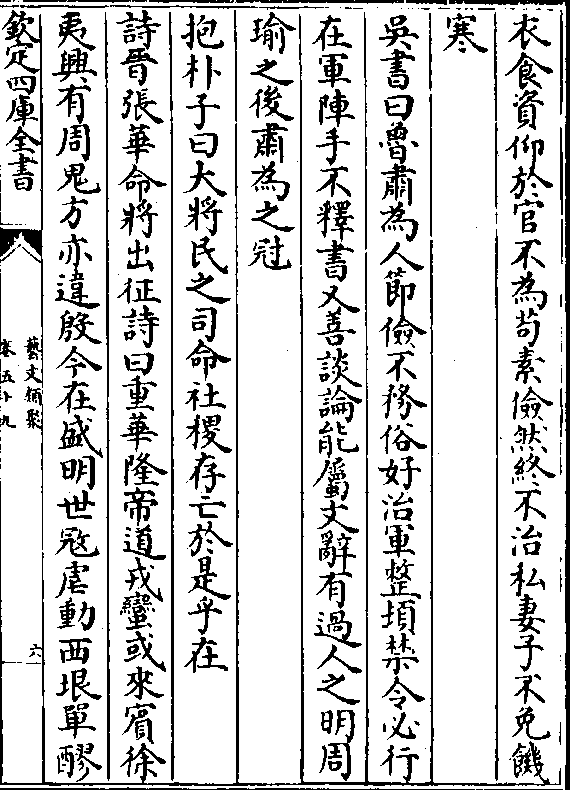 衣食資仰於官不為苟素儉然終不治私妻子不免饑
寒
吳書曰魯肅為人節儉不務俗好治軍整頓禁令必行
在軍陣手不釋書又善談論能屬文辭有過人之明周
瑜之後肅為之冠
抱朴子曰大將民之司命社稷存亡於是乎在
詩晉張華命將出征詩曰重華隆帝道戎蠻或來賓徐
夷興有周鬼方亦違殷今在盛明世寇虐動西垠單醪
欽定四庫全書
藝文類聚
卷五十九
六